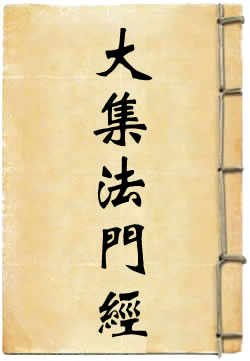 大集法門經